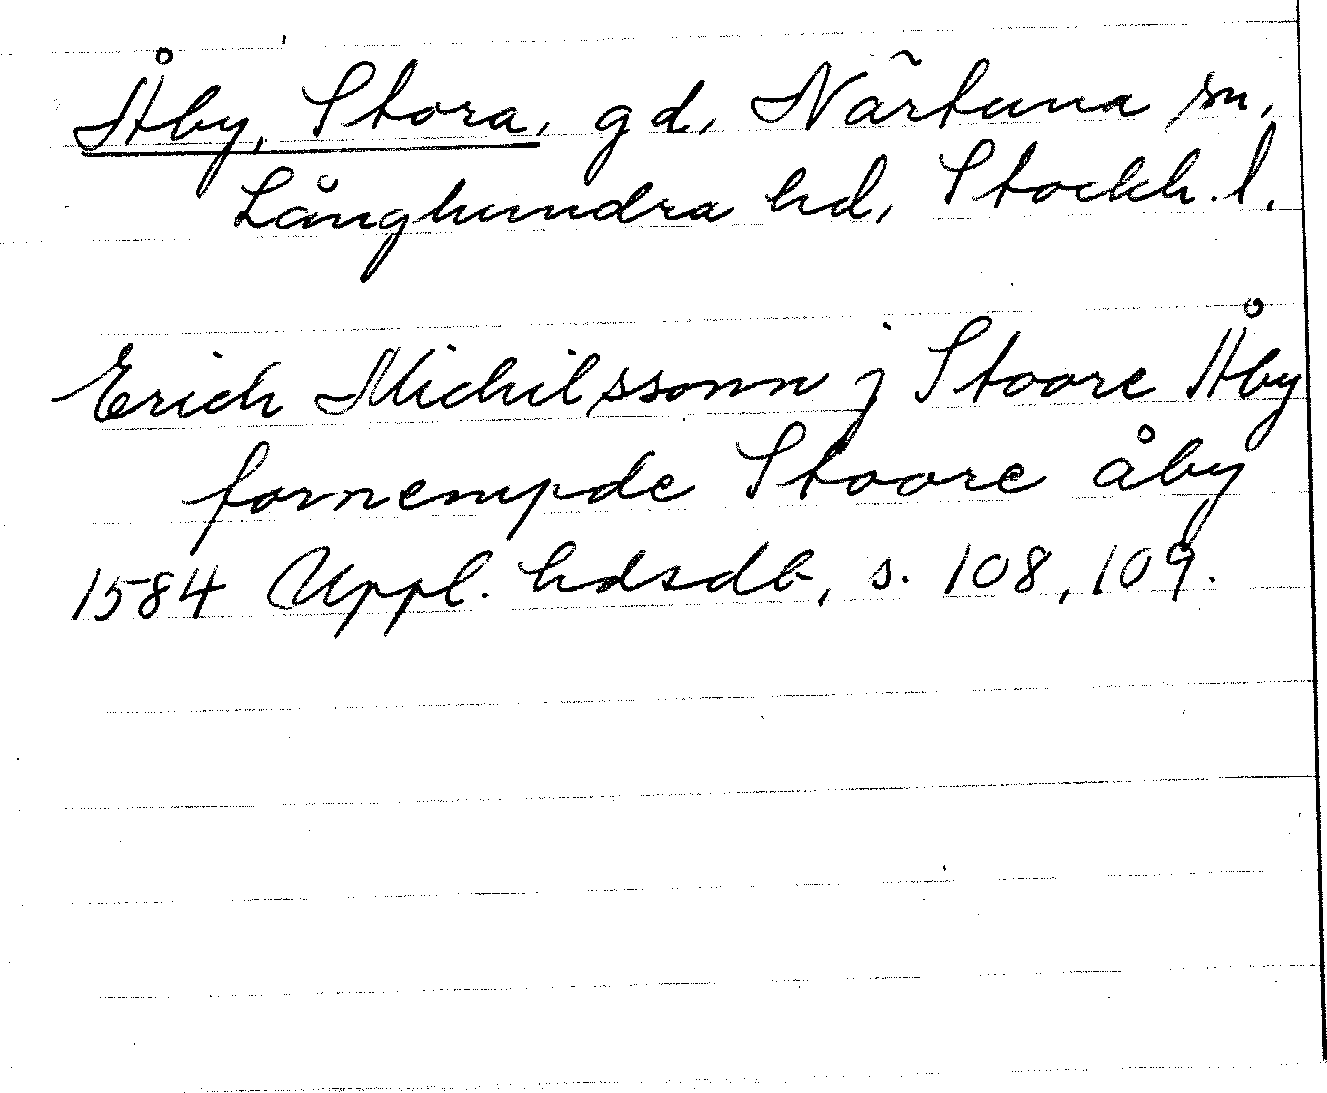 Åby, Stora, gd, Närtuna sn,
Långhundra hd, Stockh. l.
Erich Michilssonn j Stoore Åby
fornempde Stoore åby
1584 Uppl. hdsdb, s. 108, 109.